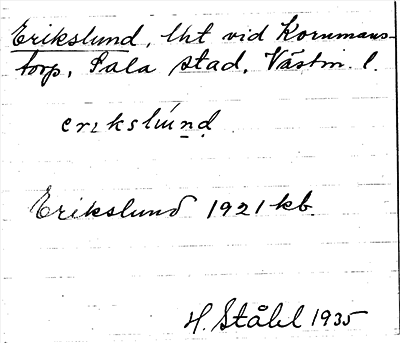 Erikslund, lht vid Kornmans-
torp, Sala stad, Västm. l.
erikslúnd
Erikslund 1921 kb.
H. Ståhl 1935